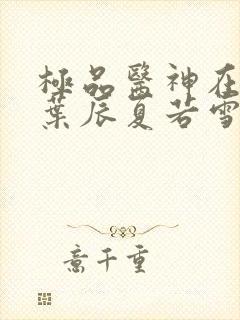 極品醫神在
葉辰夏若雪
意千重